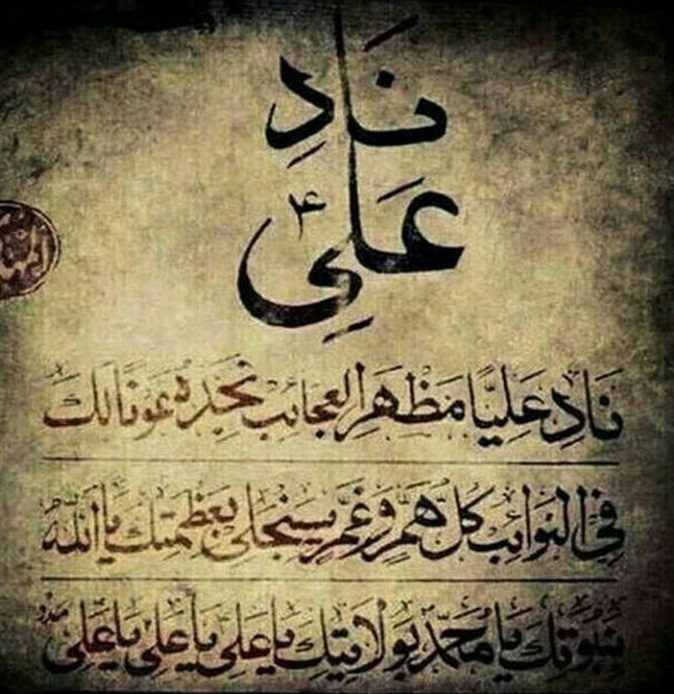 نَادِ
عَلِي
نَادِ عَلِيًّا مَظْهَرَ الْعَجَائِبِ تَجِدْهُ عَوْنًا لَكَ
فِي النَّوَائِبِ كُلُّ هَمٍّ وَغَمٍّ سَيَنْجَلِي بِعَظَمَتِكَ يَا اَللهُ
بِنُبُوَّتِكَ يَا مُحَمَّدُ بِوِلَايَتِكَ يَا عَلِيُّ يَا عَلِيُّ يَا عَلِيُّ